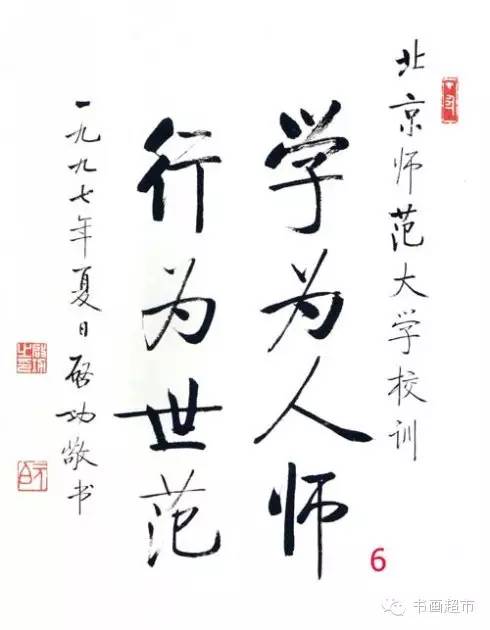 北京师范大学校训
学为人师
行为世范
一九九七年夏日启功敬书
6
书画超市